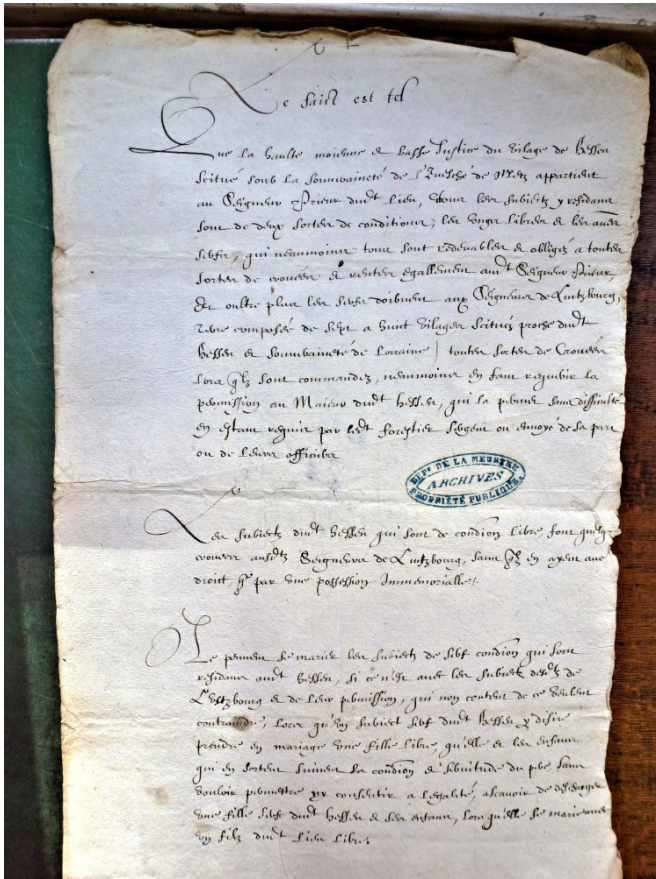 Le faict est tel
Que la haulte moienne et basse Justice du vilage de Hessen
scitué soub la souvraineté de l'Evesché de Metz appartient
au Seigneur Prieur dudt lieu, Tous les subiectz y residans
sont de deux sortes de conditions, les ungs libres et les aues
serfs, qui neantmoins tous sont redevables et obligez a toutes
sortes de crouvees et rentes egallement audt Seigneur Prieur,
Et oultre plus les serfs doibvent aux Seigneurs de Lutzbourg,
Terre composée de sept a huict vilages scitués proche dudt
Hessen et souvraineté de Lorraine toutes sortes de Crouvées
lors qlz sont commandez, neantmoins en fault requerir la
permission au Maieur dudt Hessen, qui la permet sans difficulté
en estant requis par ledt forestier sergent ou envoyé de la part
ou de leurs officiers
DEPT. DE LA MEURTHE
ARCHIVES
PROPRIÉTÉ PUBLIQUE
Les subiectz dudt Hessen qui sont de condion libre font quelqs
crouvees ausdtz Seigneurs de Lutzbourg, sans qlz en ayent auc
droict, par une possession Immemorialle.
Ne peuvent se marier les subiectz de serf condion qui sont
residans audt Hessen, si ce n'est avec les subiectz desdtz de
Lutzbourg et de leur permission, qui non content de ce veulent
contraindre, lors qu'un subiect serf dudt Hessen y desire
prendre en mariage une fille libre, qu'elle et les enfans
qui en sortent suivent la condion et servitude du pere sans
vouloir permettre consentir a l'egalité, ascavoir de
une fille serf dudt Hessen et ses enfans, lors qu'elle se marie avec
un filz dudt lieu libre.